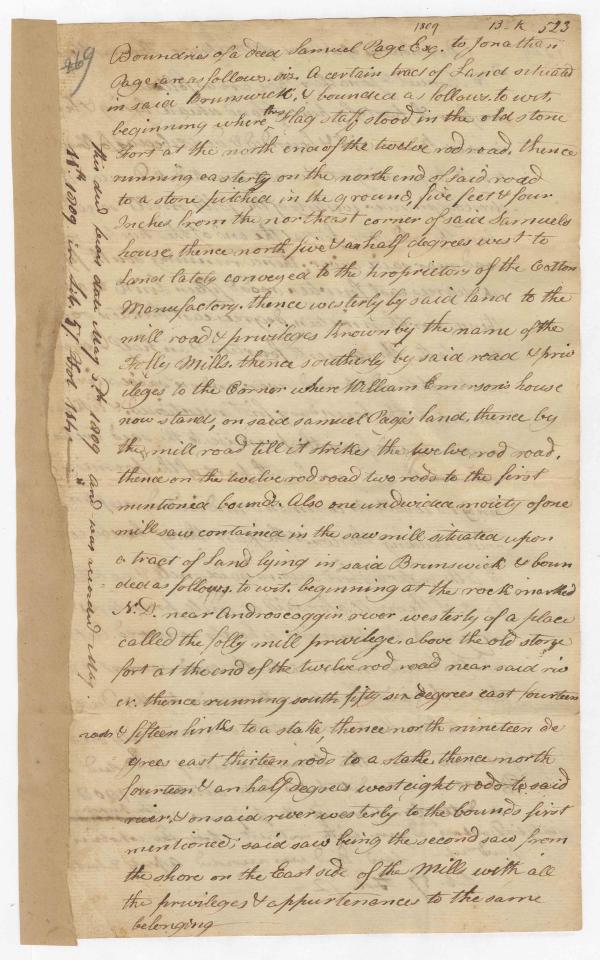 1809 13-K 523
469
Boundries of a deed Samuel Page Esq. to Jonathan
Page, are as follows. viz. A certain tract of Land situated
in said Brunswick, & bounded as follows. to wit,
beginning where the Flag staff stood in the old stone
Fort at the north end of the twelve rod road. thence
running easterly on the north end of said road
to a stone pitched in the ground, five feet & four
Inches from the northeast corner of said Samuels
house, thence north five & an half degrees west to
Land lately conveyed to the proprietors of the Cotton
Manufactory. thence westerly by said land to the
mill road & privileges known by the name of the
Folly Mills. thence southerly by said road & priv
ileges to the Corner where William Emerson's house
now stand, on said samuel Pages land. thence by
the mill road till it strikes the twelve rod road.
thence on the twelve rod road two rods to the first
mentioned bound. Also one undivided moiety of one
mill saw contained in the saw mill situated upon
a tract of Land lying in said Brunswick & boun
ded as follows. to wit. beginning at the rock marked
N. D. near Androscoggin river westerly of a place
called the folly mill privilege. above the old stone
fort at the end of the twelve rod road near said riv
er. thence running south fifty six degrees east fourteen
rods & fifteen links to a stake, thence north nineteen de
grees east thirteen rods to a stake. thence north
fourteen & an half degrees west eight rods to said
river, & on said river westerly to the bounds first
mentioned; said saw being the second saw from
the shore on the East side of the Mills with all
the privileges & appurtenances to the same
belonging
this deed bears date May 5th 1809 and was recorded May
18th. 1809 in Lib. 57. Fol.